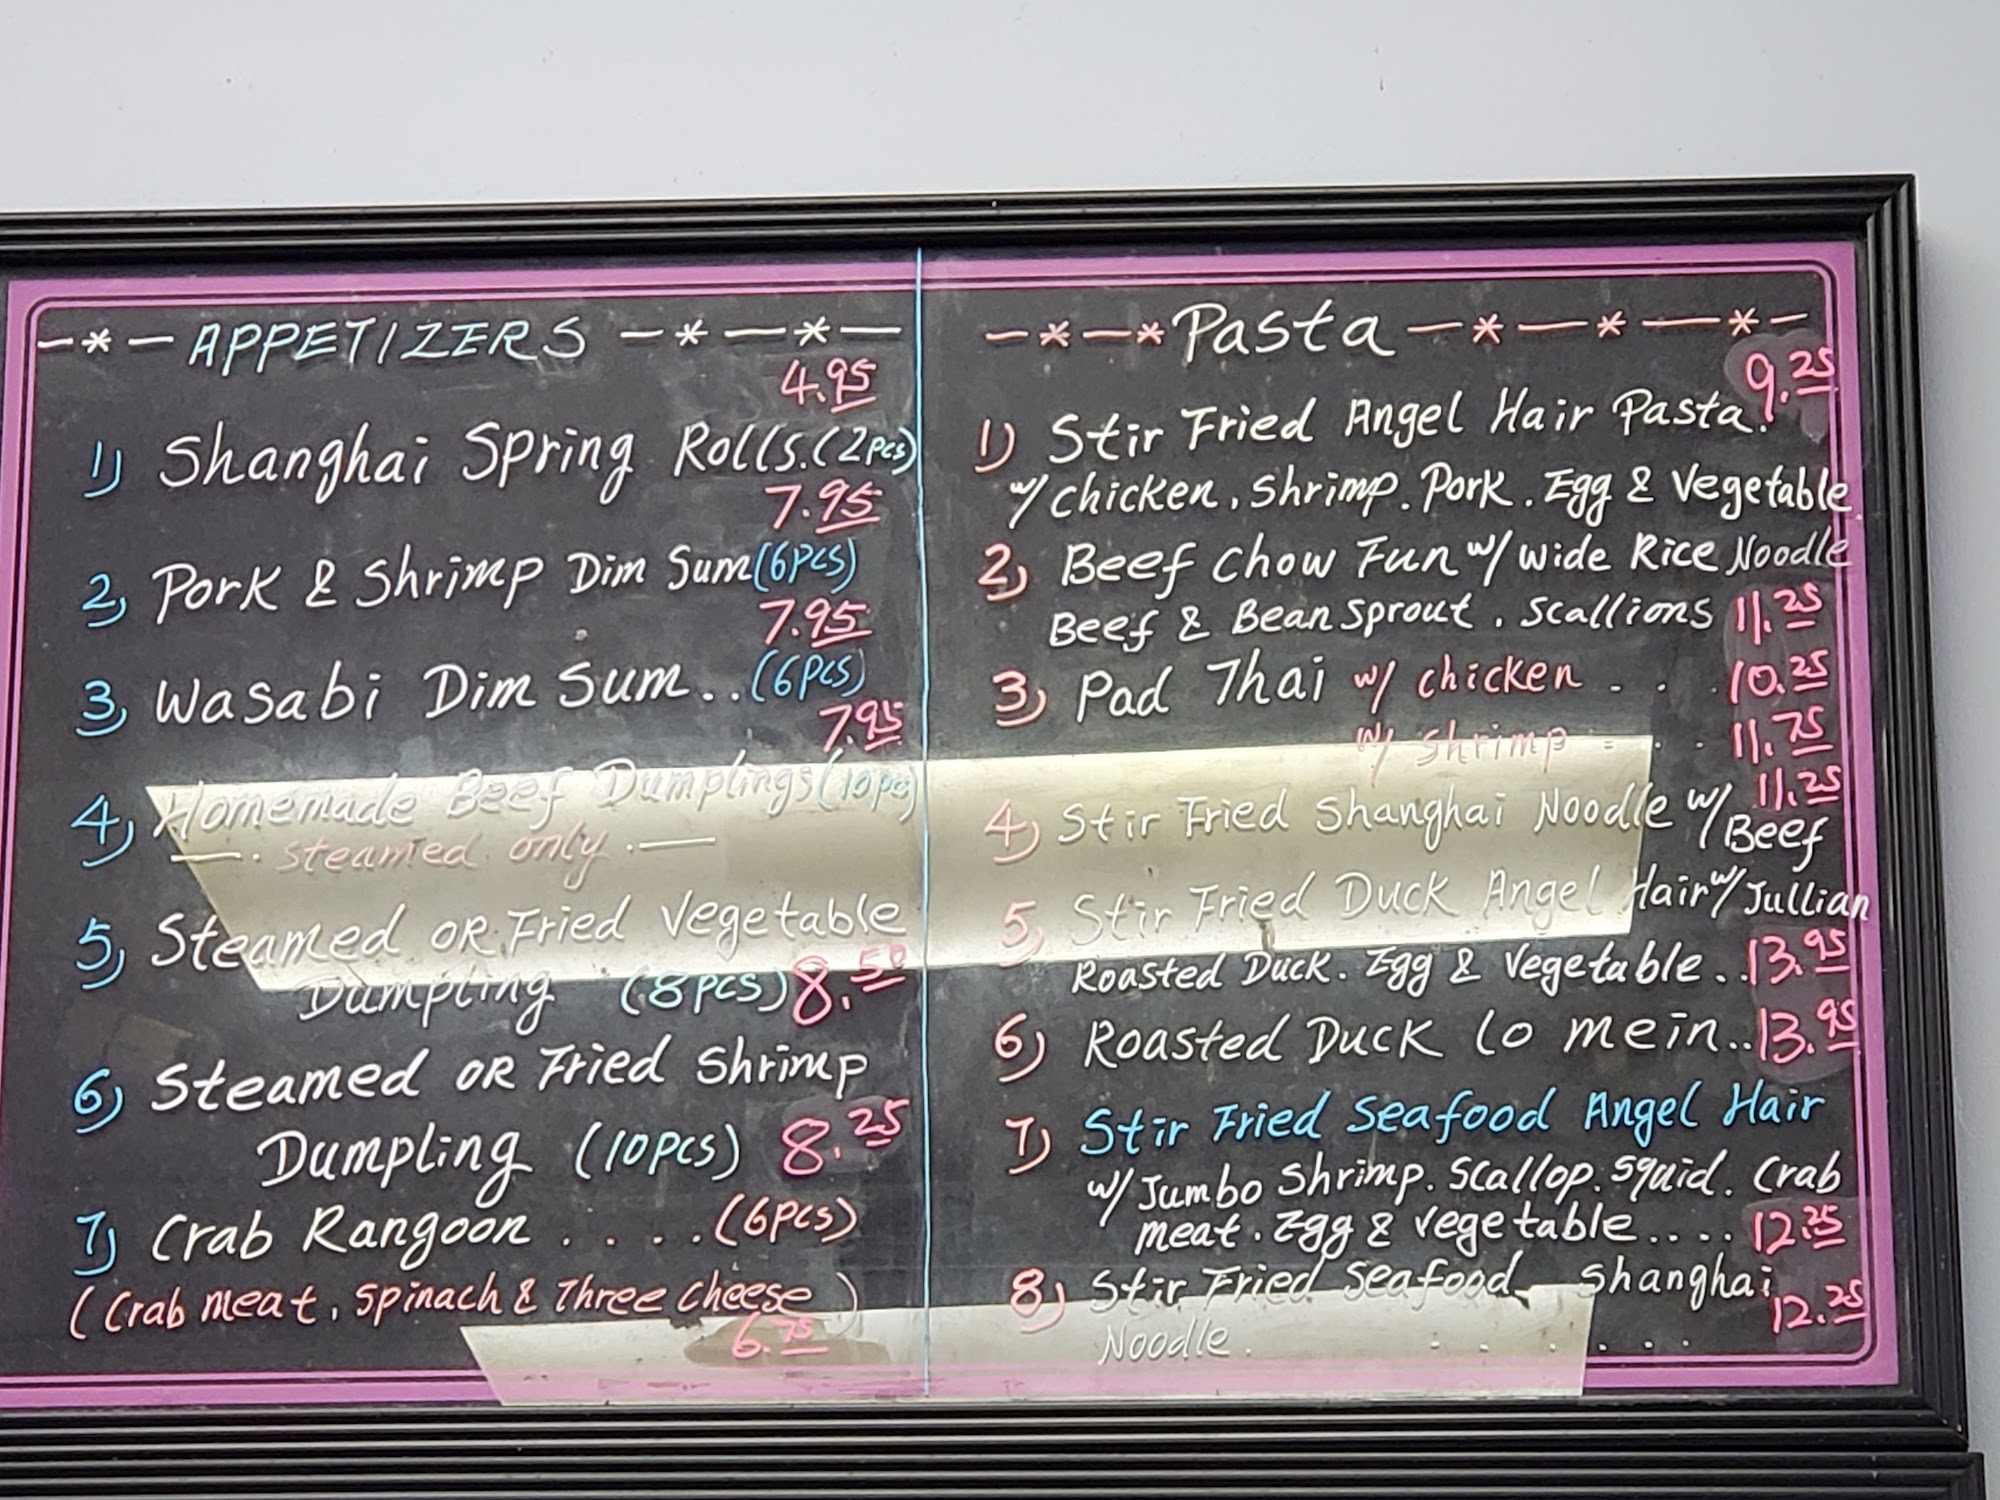 —*— APPETIZERS —*—*—
4.95
1) Shanghai Spring Rolls.(2pcs)
7.95
2) Pork & Shrimp Dim Sum(6pcs)
7.95
3) Wasabi Dim Sum..(6pcs)
7.95
4) Homemade Beef Dumplings(10pcs)
—. steamed only .—
5) Steamed OR Fried Vegetable
Dumpling (8pcs) 8.50
6) Steamed OR Fried Shrimp
Dumpling (10pcs) 8.25
7) Crab Rangoon . . . . (6pcs)
(Crab meat, Spinach & Three Cheese)
6.75
—*—* Pasta —*—*—*—
9.25
1) Stir Fried Angel Hair Pasta.
w/ chicken. Shrimp. Pork. Egg & Vegetable
2) Beef Chow Fun w/ wide Rice Noodle
Beef & Bean Sprout . Scallions 11.25
3) Pad Thai w/ chicken . . . 10.25
w/ shrimp . . . 11.75
11.25
4) Stir Fried Shanghai Noodle w/ Beef
5) Stir Fried Duck Angel Hair w/ Jullian
Roasted Duck. Egg & Vegetable .. 13.95
6) Roasted Duck lo mein.. 13.95
7) Stir Fried Seafood Angel Hair
w/ Jumbo Shrimp. Scallop. Squid. Crab
meat. Egg & vegetable.... 12.25
8) Stir Fried Seafood Shanghai
12.25
Noodle. . . . . . .